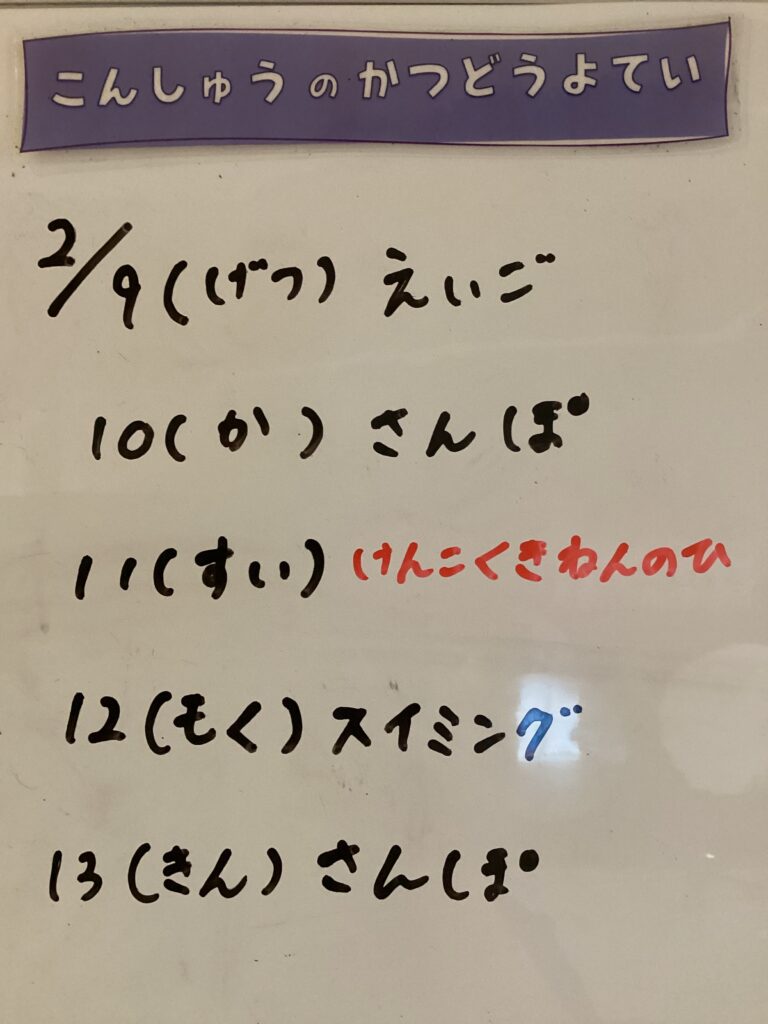 こんしゅうのかつどうよてい
2/9(げつ) えいご
10(か) さんぽ
11(すい) けんこくきねんのひ
12(もく) スイミング
13(きん) さんぽ